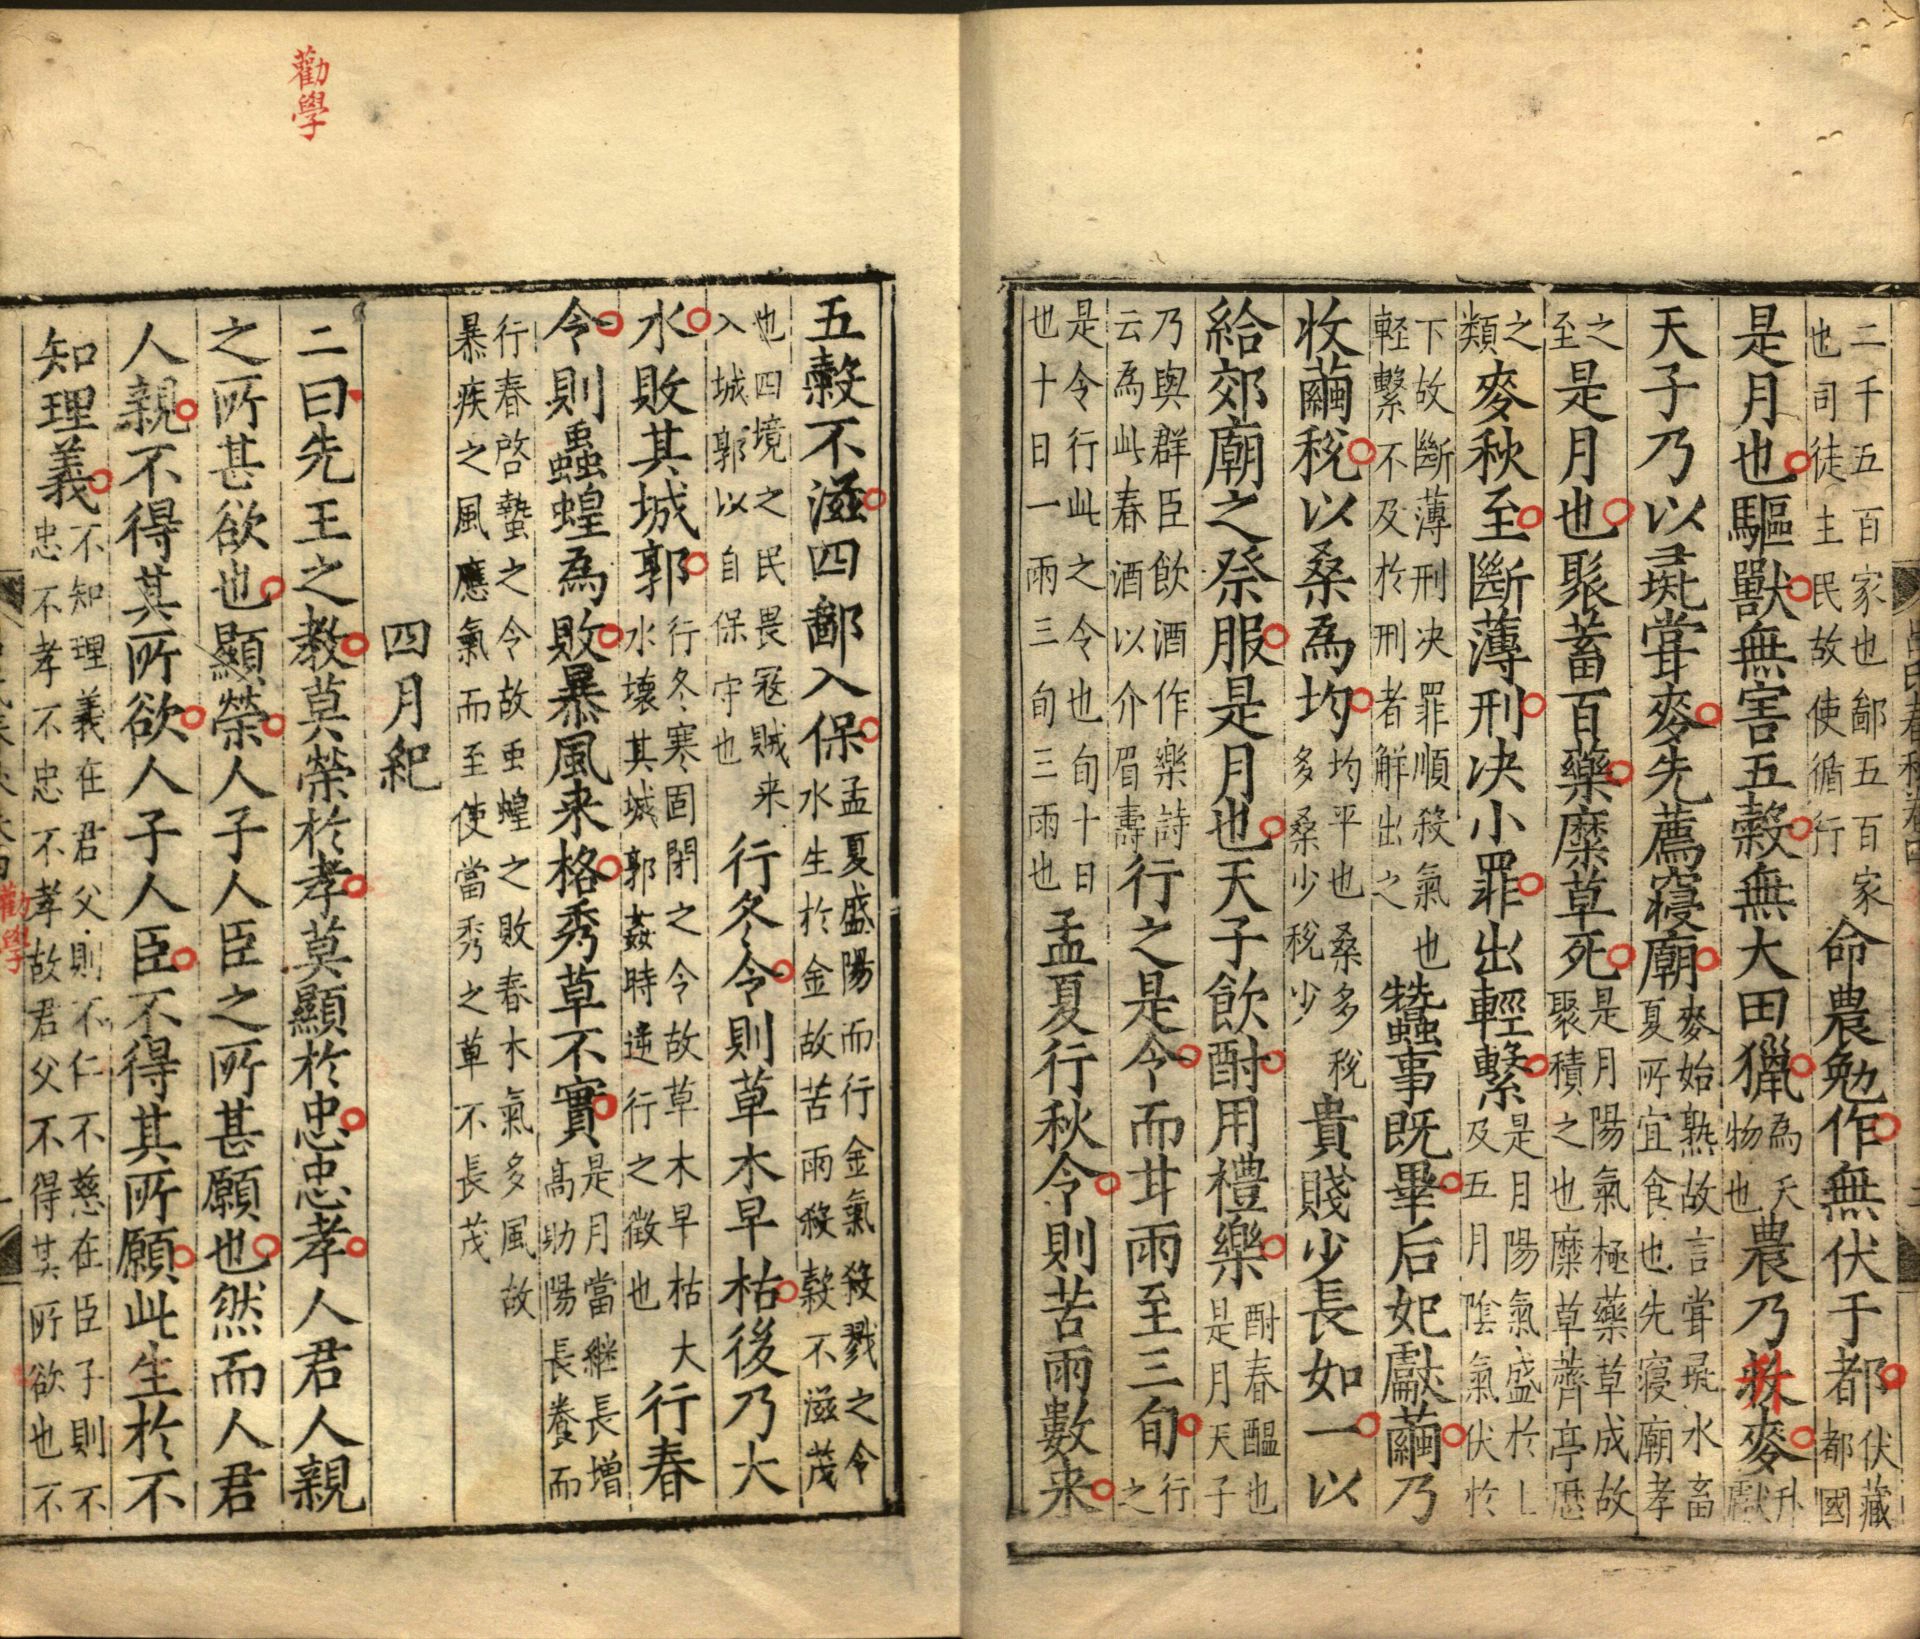 二千五百家也鄙五百家
也司徒主民故使循行
命農勉作無伏于都
伏藏
都國
是月也驅獸無害五穀無大田獵
為夭
物也
農乃麥
升
獻
天子乃以彘甞麥先薦寢廟
麥始熟故言甞彘水畜
夏所宜食也先寢廟孝
之
至
是月也聚蓄百藥糜草死
是月陽氣極藥草成故
聚積之也糜草薺亭歷
之
類
麥秋至斷薄刑决小罪出輕繫
是月陽氣盛於上
及五月陰氣伏於
下故斷薄刑决罪順殺氣也
軽繫不及於刑者解出之
蠶事既畢后妃獻繭乃
收繭稅以桑為均
均平也桑多稅
多桑少稅少
貴賤少長如一以
給郊廟之祭服是月也天子飲酎用禮樂
酎春醖也
是月天子
乃與群臣飲酒作樂詩
云為此春酒以介眉壽
行之是令而甘雨至三旬
行
之
是令行此之令也旬十日
也十日一雨三旬三雨也
孟夏行秋令則苦雨數来
勸學
五穀不滋四鄙入保
孟夏盛陽而行金氣殺戮之令
水生於金故苦雨殺穀不滋茂
也四境之民畏寇賊来
入城郭以自保守也
行冬令則草木早枯後乃大
水敗其城郭
行冬寒固閉之令故草木早枯大
水壞其城郭姦時逆行之徴也
行春
令則蟲蝗為敗暴風来格秀草不實
是月當継長增
高助陽長養而
行春啓蟄之令故虫蝗之敗春木氣多風故
暴疾之風應氣而至使當秀之草不長茂
四月紀
二曰先王之教莫榮於孝莫顯於忠忠孝人君人親
之所甚欲也顯榮人子人臣之所甚願也然而人君
人親不得其所欲人子人臣不得其所願此生於不
知理義
不知理義在君父則不仁不慈在臣子則不
忠不孝不忠不孝故君父不得其所欲也不
勸學